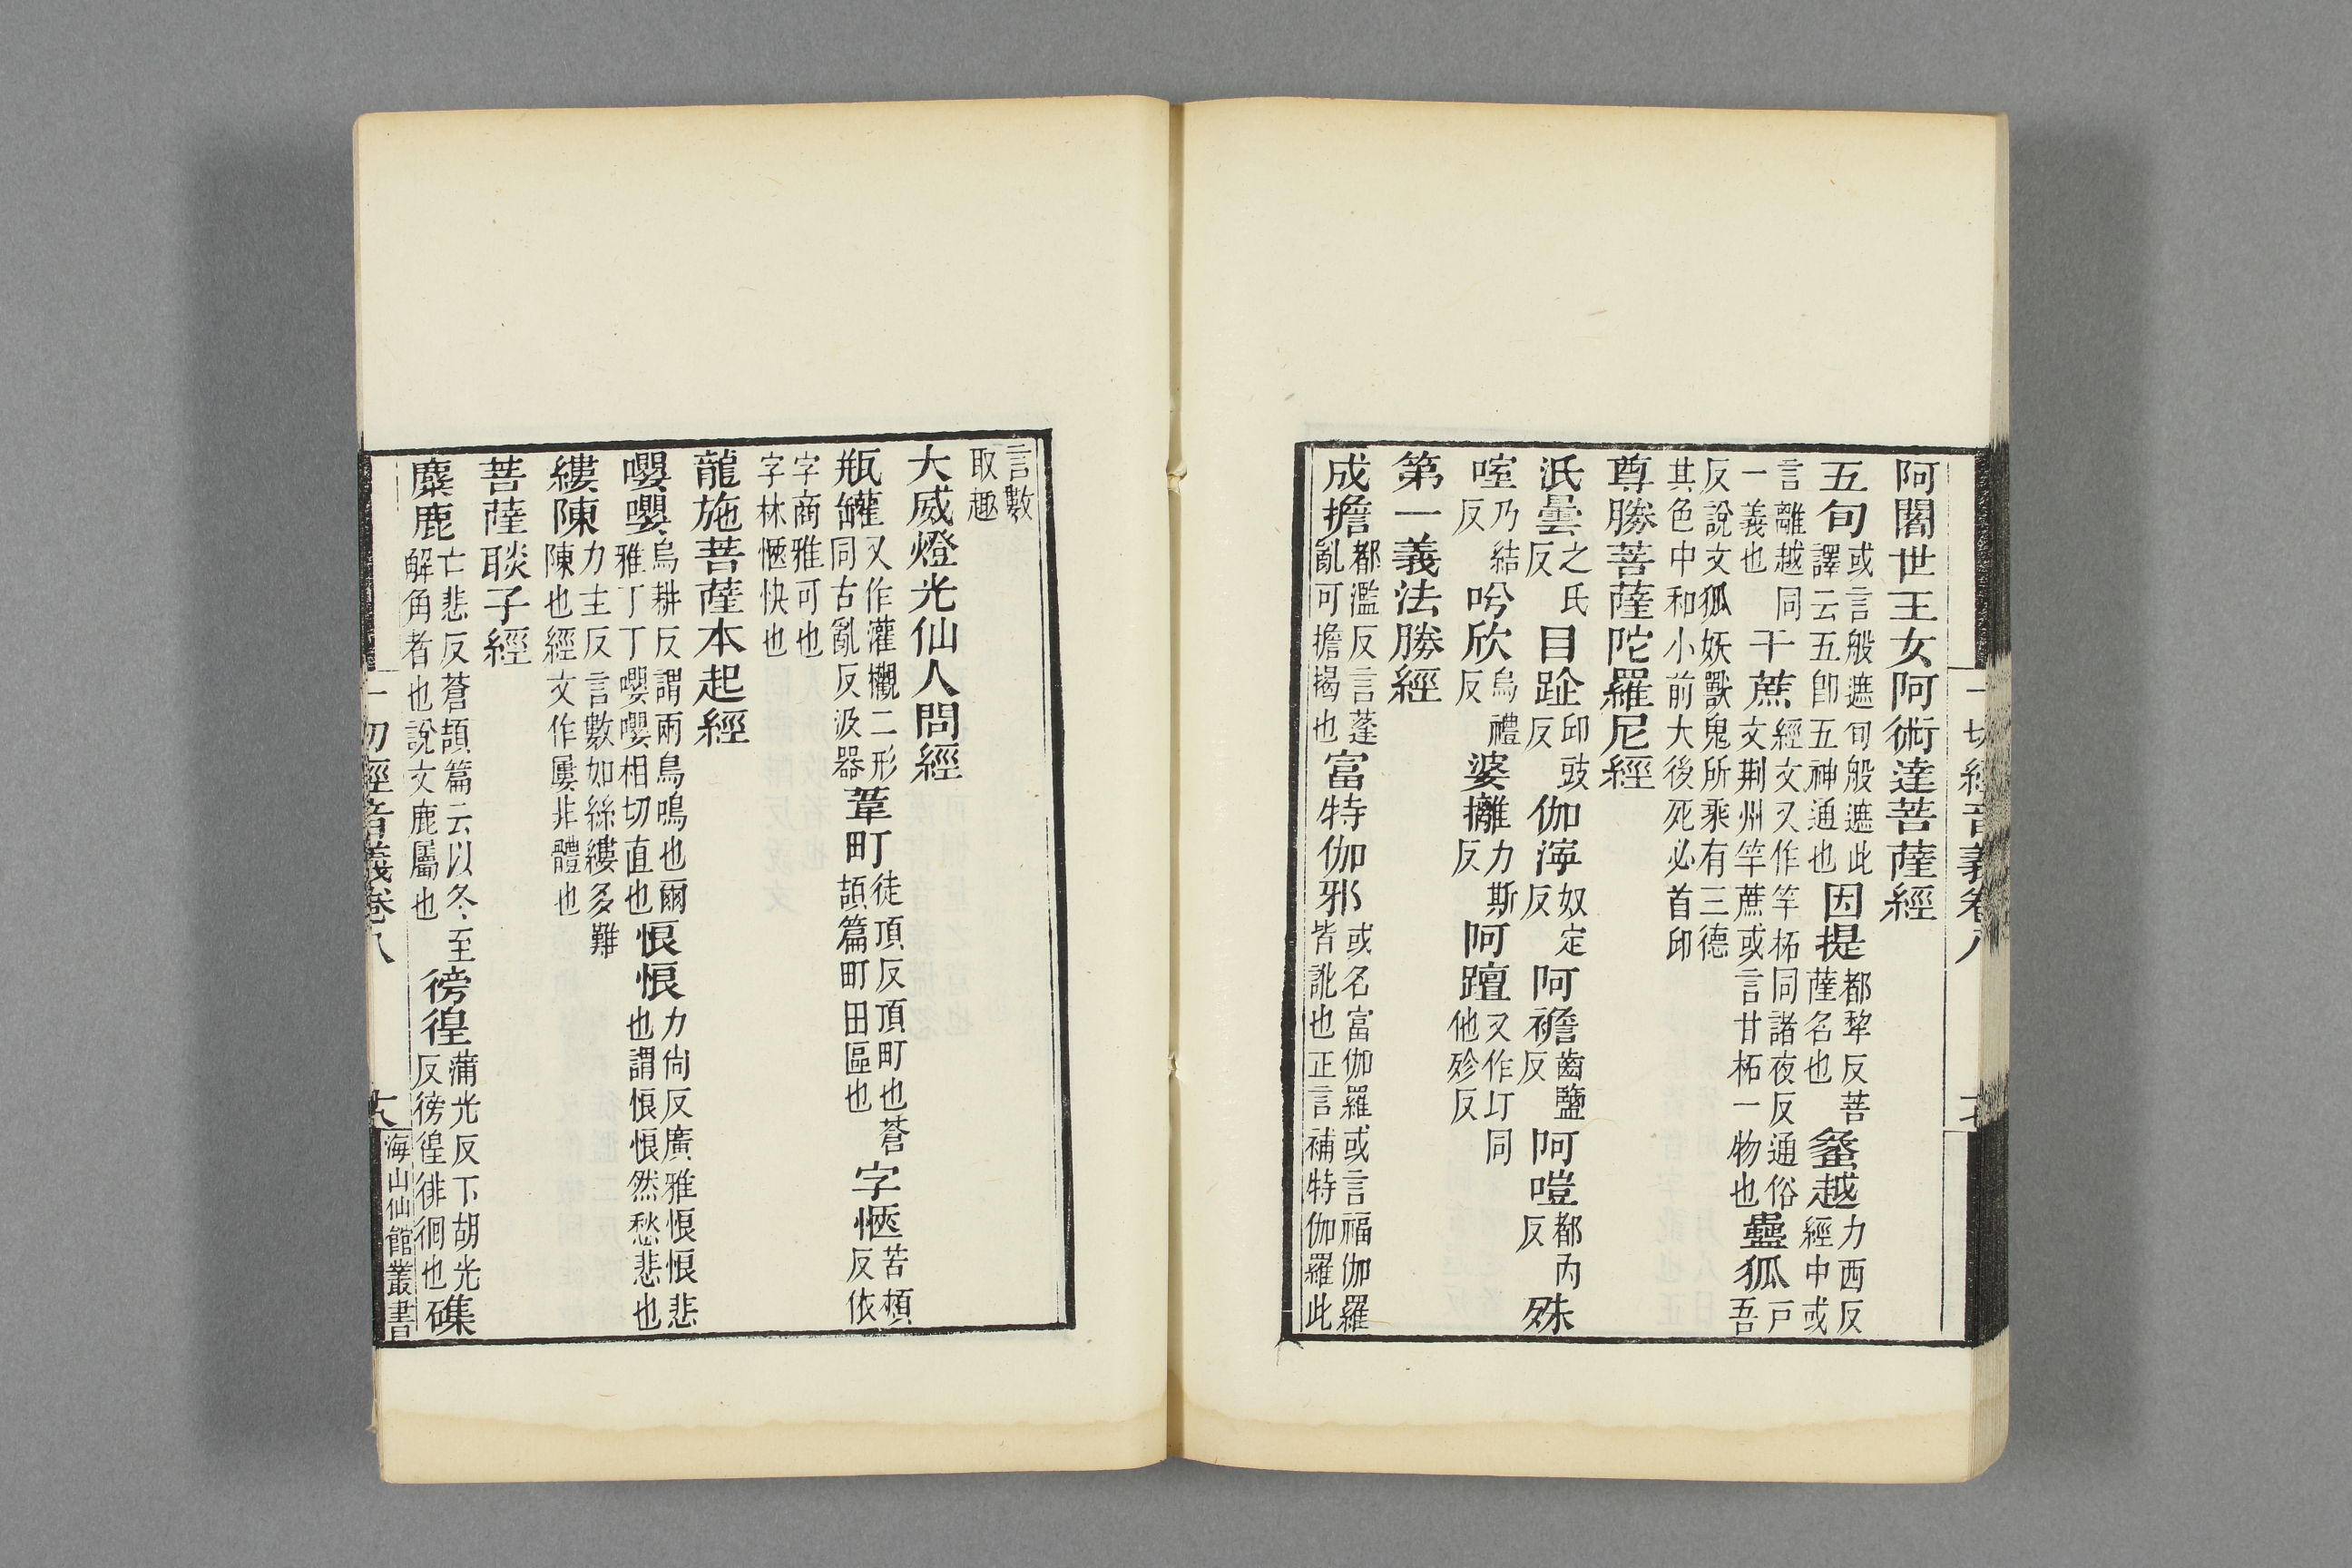 阿闍世王女阿術達菩薩經
五旬或言般遮旬般遮此譯云五卽五神通也因提都犂反菩薩名也蠡越力西反經中或
言離越同一義也干蔗經文又作竿柘同諸夜反通俗文荆州竿蔗或言甘柘一物也蠱狐戸吾
反說文狐妖獸鬼所乘有三德其色中和小前大後死必首邱
尊勝菩薩陀羅尼經
泜曇之氐反目跐邱豉反伽濘奴定反阿襜齒鹽反阿嗑都丙反殊
喹乃結反吟欣烏禮反婆攡力斯反阿䠠又作圢同他殄反
第一義法勝經
成擔都濫反言蓬亂可擔揭也富特伽邪或名富伽羅或言福伽羅皆訛也正言補特伽羅此
一切經音義卷八
言數取趣
大威燈光仙人問經
瓶鑵又作灌欟二形同古亂反汲器葦町徒頂反頂町也蒼頡篇町田區也字愜苦頰反依
字商雅可也字林愜快也
龍施菩薩本起經
嚶嚶烏耕反謂兩鳥鳴也爾雅丁丁嚶嚶相切直也悢悢力尙反廣雅悢悢悲也謂悢悢然愁悲也
縷陳力主反言數如絲縷多難陳也經文作屢非體也
菩薩睒子經
麋鹿亡悲反蒼頡篇云以冬至解角者也說文鹿屬也徬徨蒲光反下胡光反徬徨徘徊也磼
一切經音義卷八
海山仙館叢書